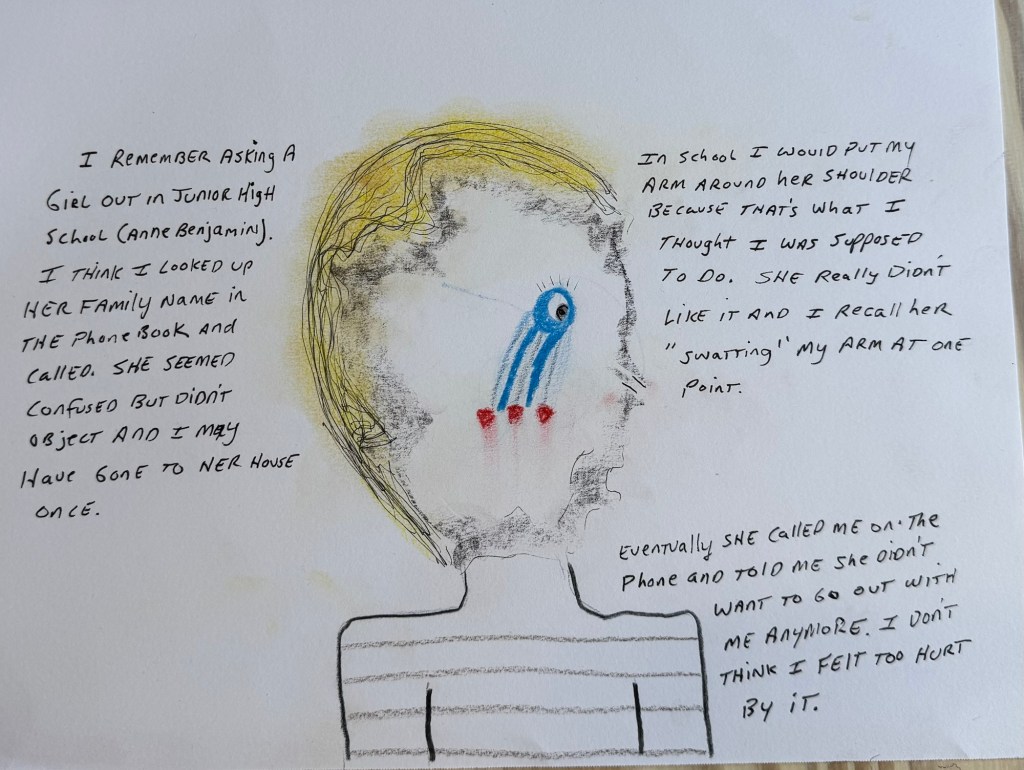 I REMEMBER ASKING A
GIRL OUT in JUNIOR HIGH
SCHOOL (Anne Benjamin).
I THINK I LOOKED UP
HER FAMILY NAME in
THE PHONE BOOK AND
CALLED. SHE SEEMED
CONFUSED BUT DIDN'T
OBJECT AND I MAY
HAVE GONE TO HER HOUSE
ONCE.
In SCHOOL I WOULD PUT MY
ARM AROUND HER SHOULDER
BECAUSE THAT'S WHAT I
THOUGHT I WAS SUPPOSED
TO DO. SHE REALLY DIDN'T
LIKE IT AND I RECALL HER
"SWATTING" MY ARM AT ONE
POINT.
EVENTUALLY SHE CALLED ME ON THE
PHONE AND TOLD ME SHE DIDN'T
WANT TO GO OUT WITH
ME ANYMORE. I DON'T
THINK I FELT TOO HURT
BY IT.